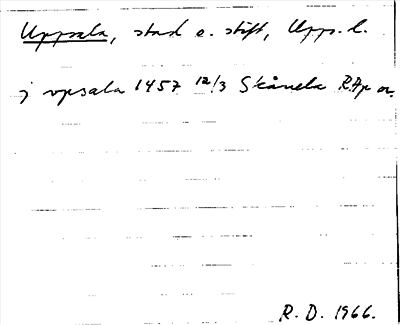 Uppsala, stad o. stift, Uppl.
j vpsala 1457 12/3 Skånela RAp or.
R. D. 1966.